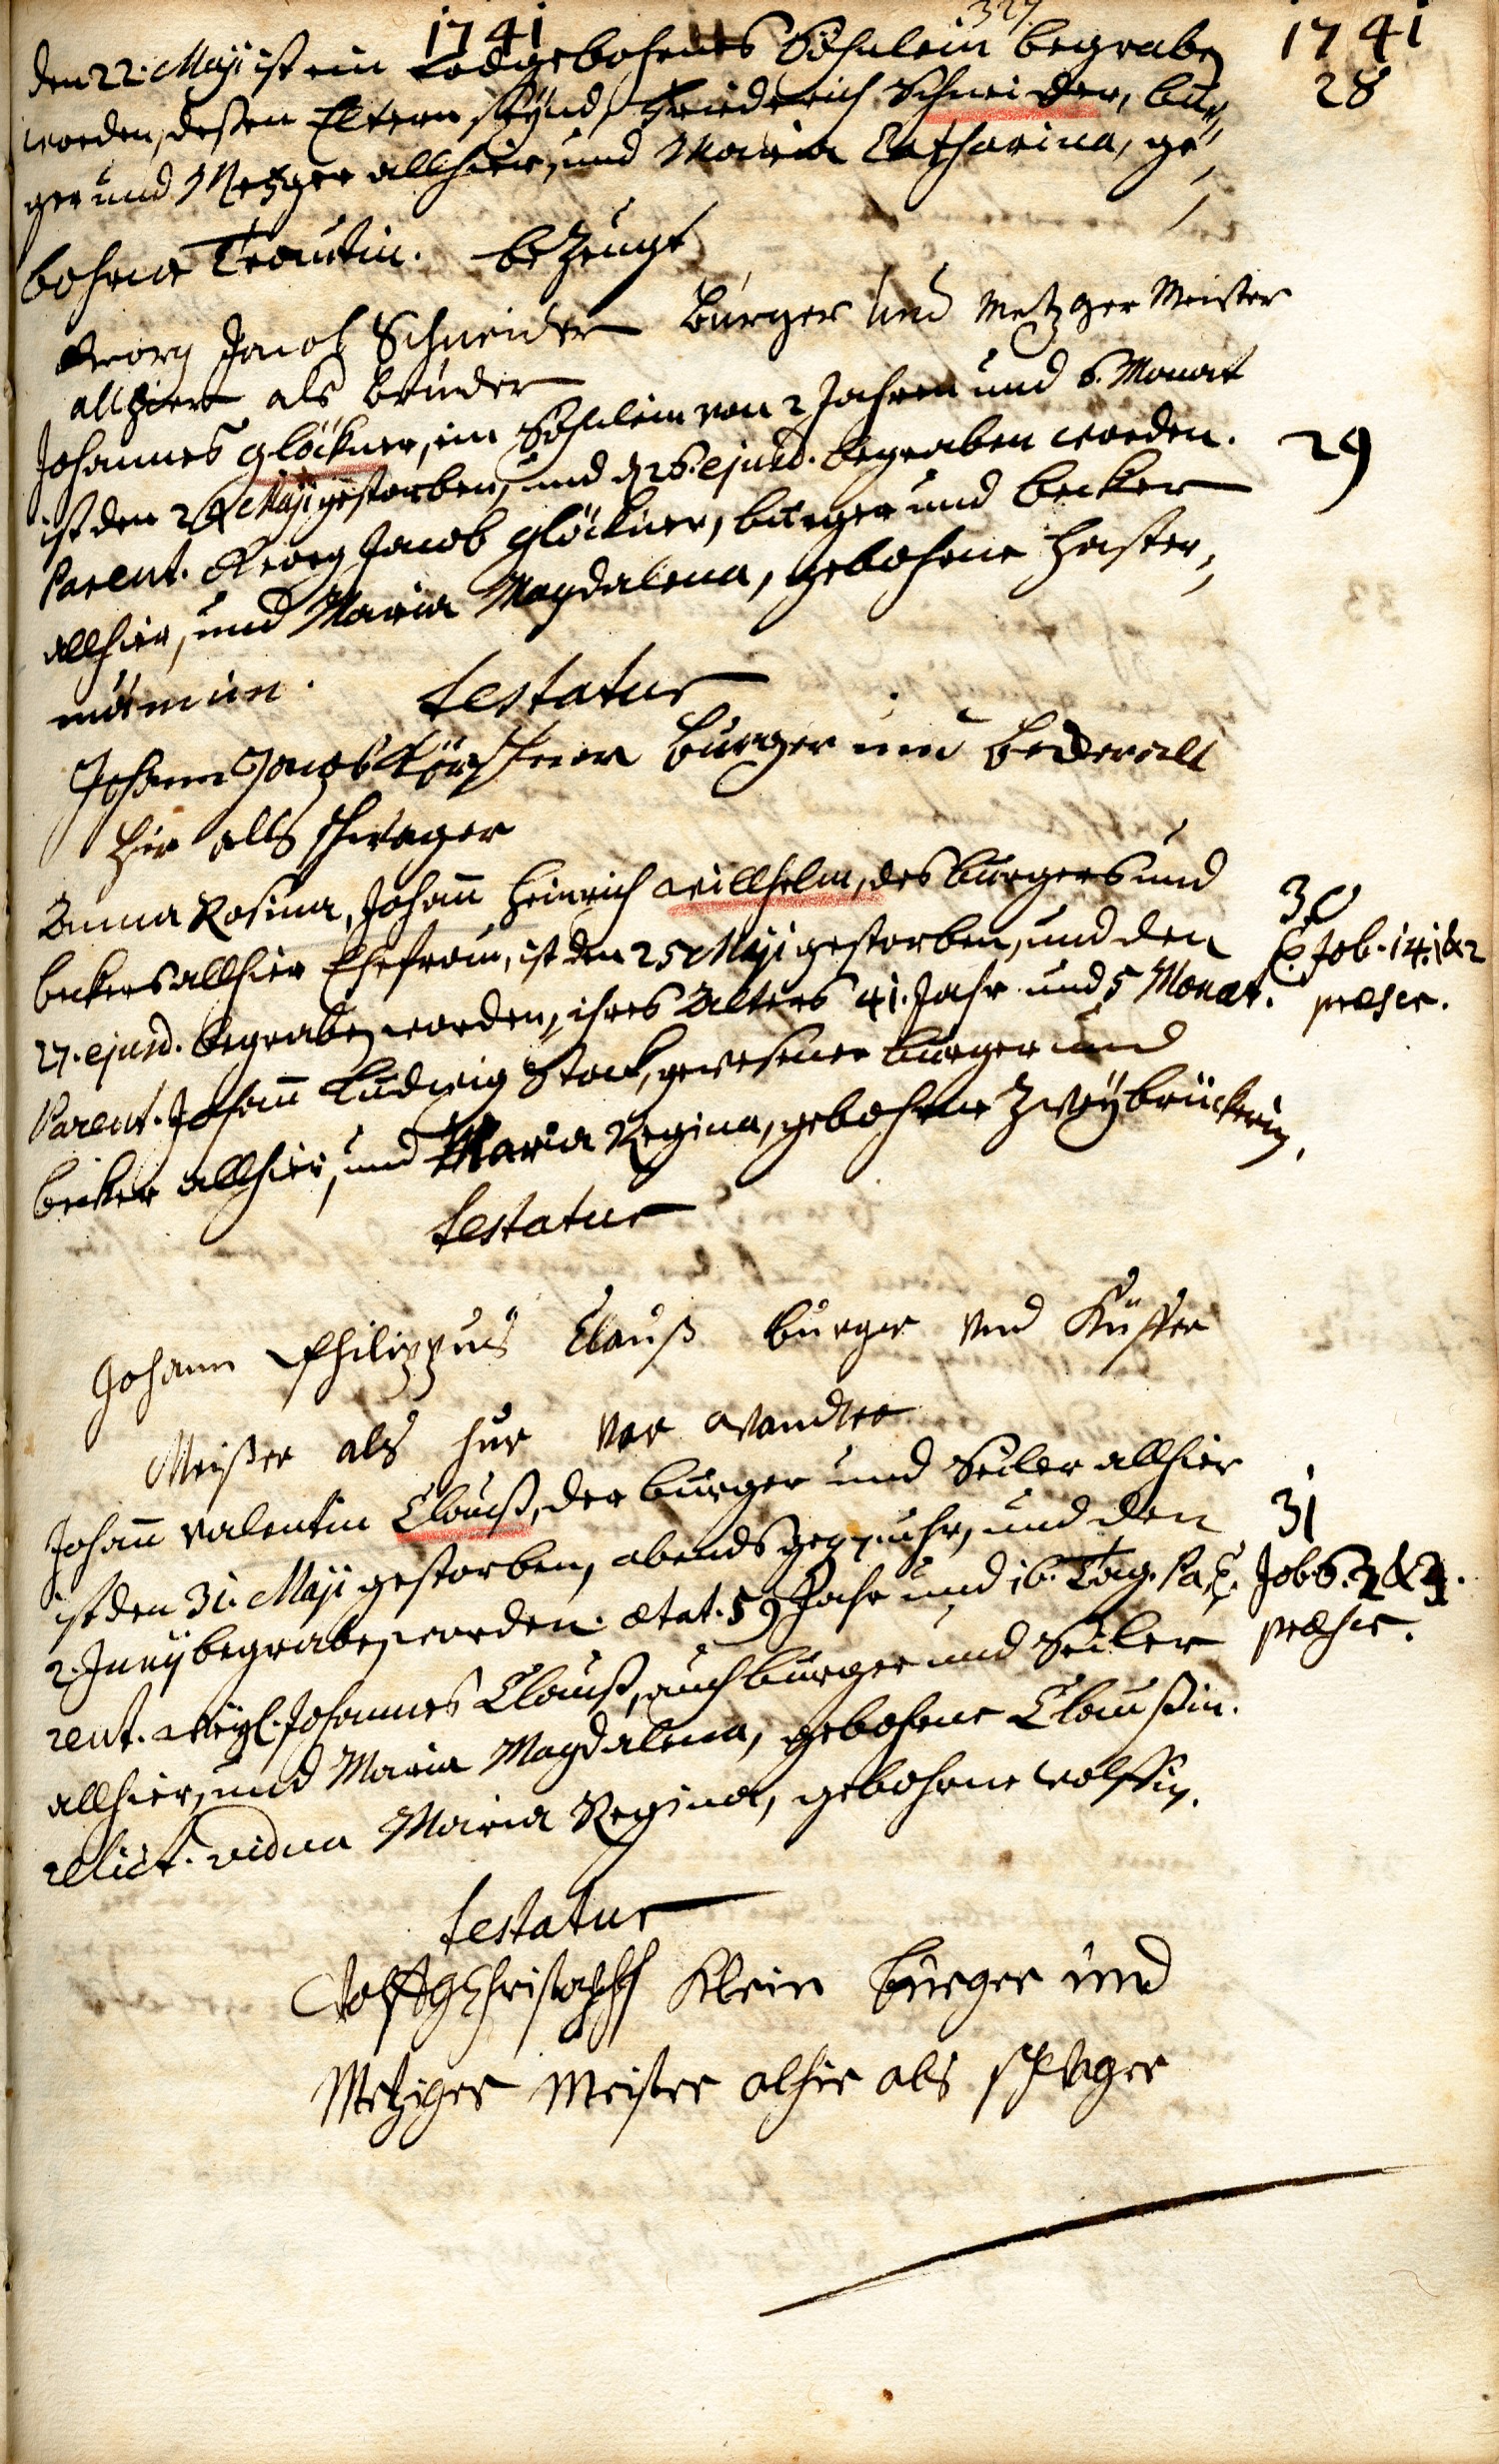 327
1741 1741
den 22. Maji ist ein todgebohrnes Söhnlein begraben 28
worden, deßen Eltern seynd Friederich Schneider, bur-
ger und Metzger allhier, und Maria Catharina, ge-
bohrne Trautin. bezeugt
Georg Jacob Schneider burger und Metzger Meister
allhier als bruder
Johannes Glöckner, ein Söhnlein von 2 Jahren und 6. Monat 29
ist den 24 Maji gestorben, und d 26. ejusd. begraben worden.
Parent. Georg Jacob Glöckner, burger und becker
allhier, und Maria Magdalena, gebohrne Haster-
männin. testatur
Johann Jacob Körschner burger und beder all
hir alß schwager
Anna Rosina, Johann Heinrich Willhelm, des burgers und 30
beckers allhier Ehefrau, ist den 25 Maji gestorben, und den Job. 14. 1 & 2
27. ejusd. begraben worden, ihres Alters 41. Jahr und 5 Monat.
Parent. Johann Ludwig Stock, gewesener burger und
becker allhier, und Maria Regina, gebohrne Zweybrückerin.
testatur
Johann Philippus Clauß burger und Küffer
Meister als
Johann Valentin Clauß, der burger und Seiler allhier 31
ist den 31. Maji gestorben, abends gegen uhr, und den
2. Junij begraben worden. ætat. 59 Jahr und 16. Tag. Pa- Job. 6. 2 & 3.
rent. weyl. Johannes Clauß, auch burger und Seiler
allhier, und Maria Magdalena, gebohrne Claußin.
relict. vidua Maria Regina, gebohrne Wolffin.
testatur
Wolffg Christoph Klein burger und
Metziger Meister alhir als schwager